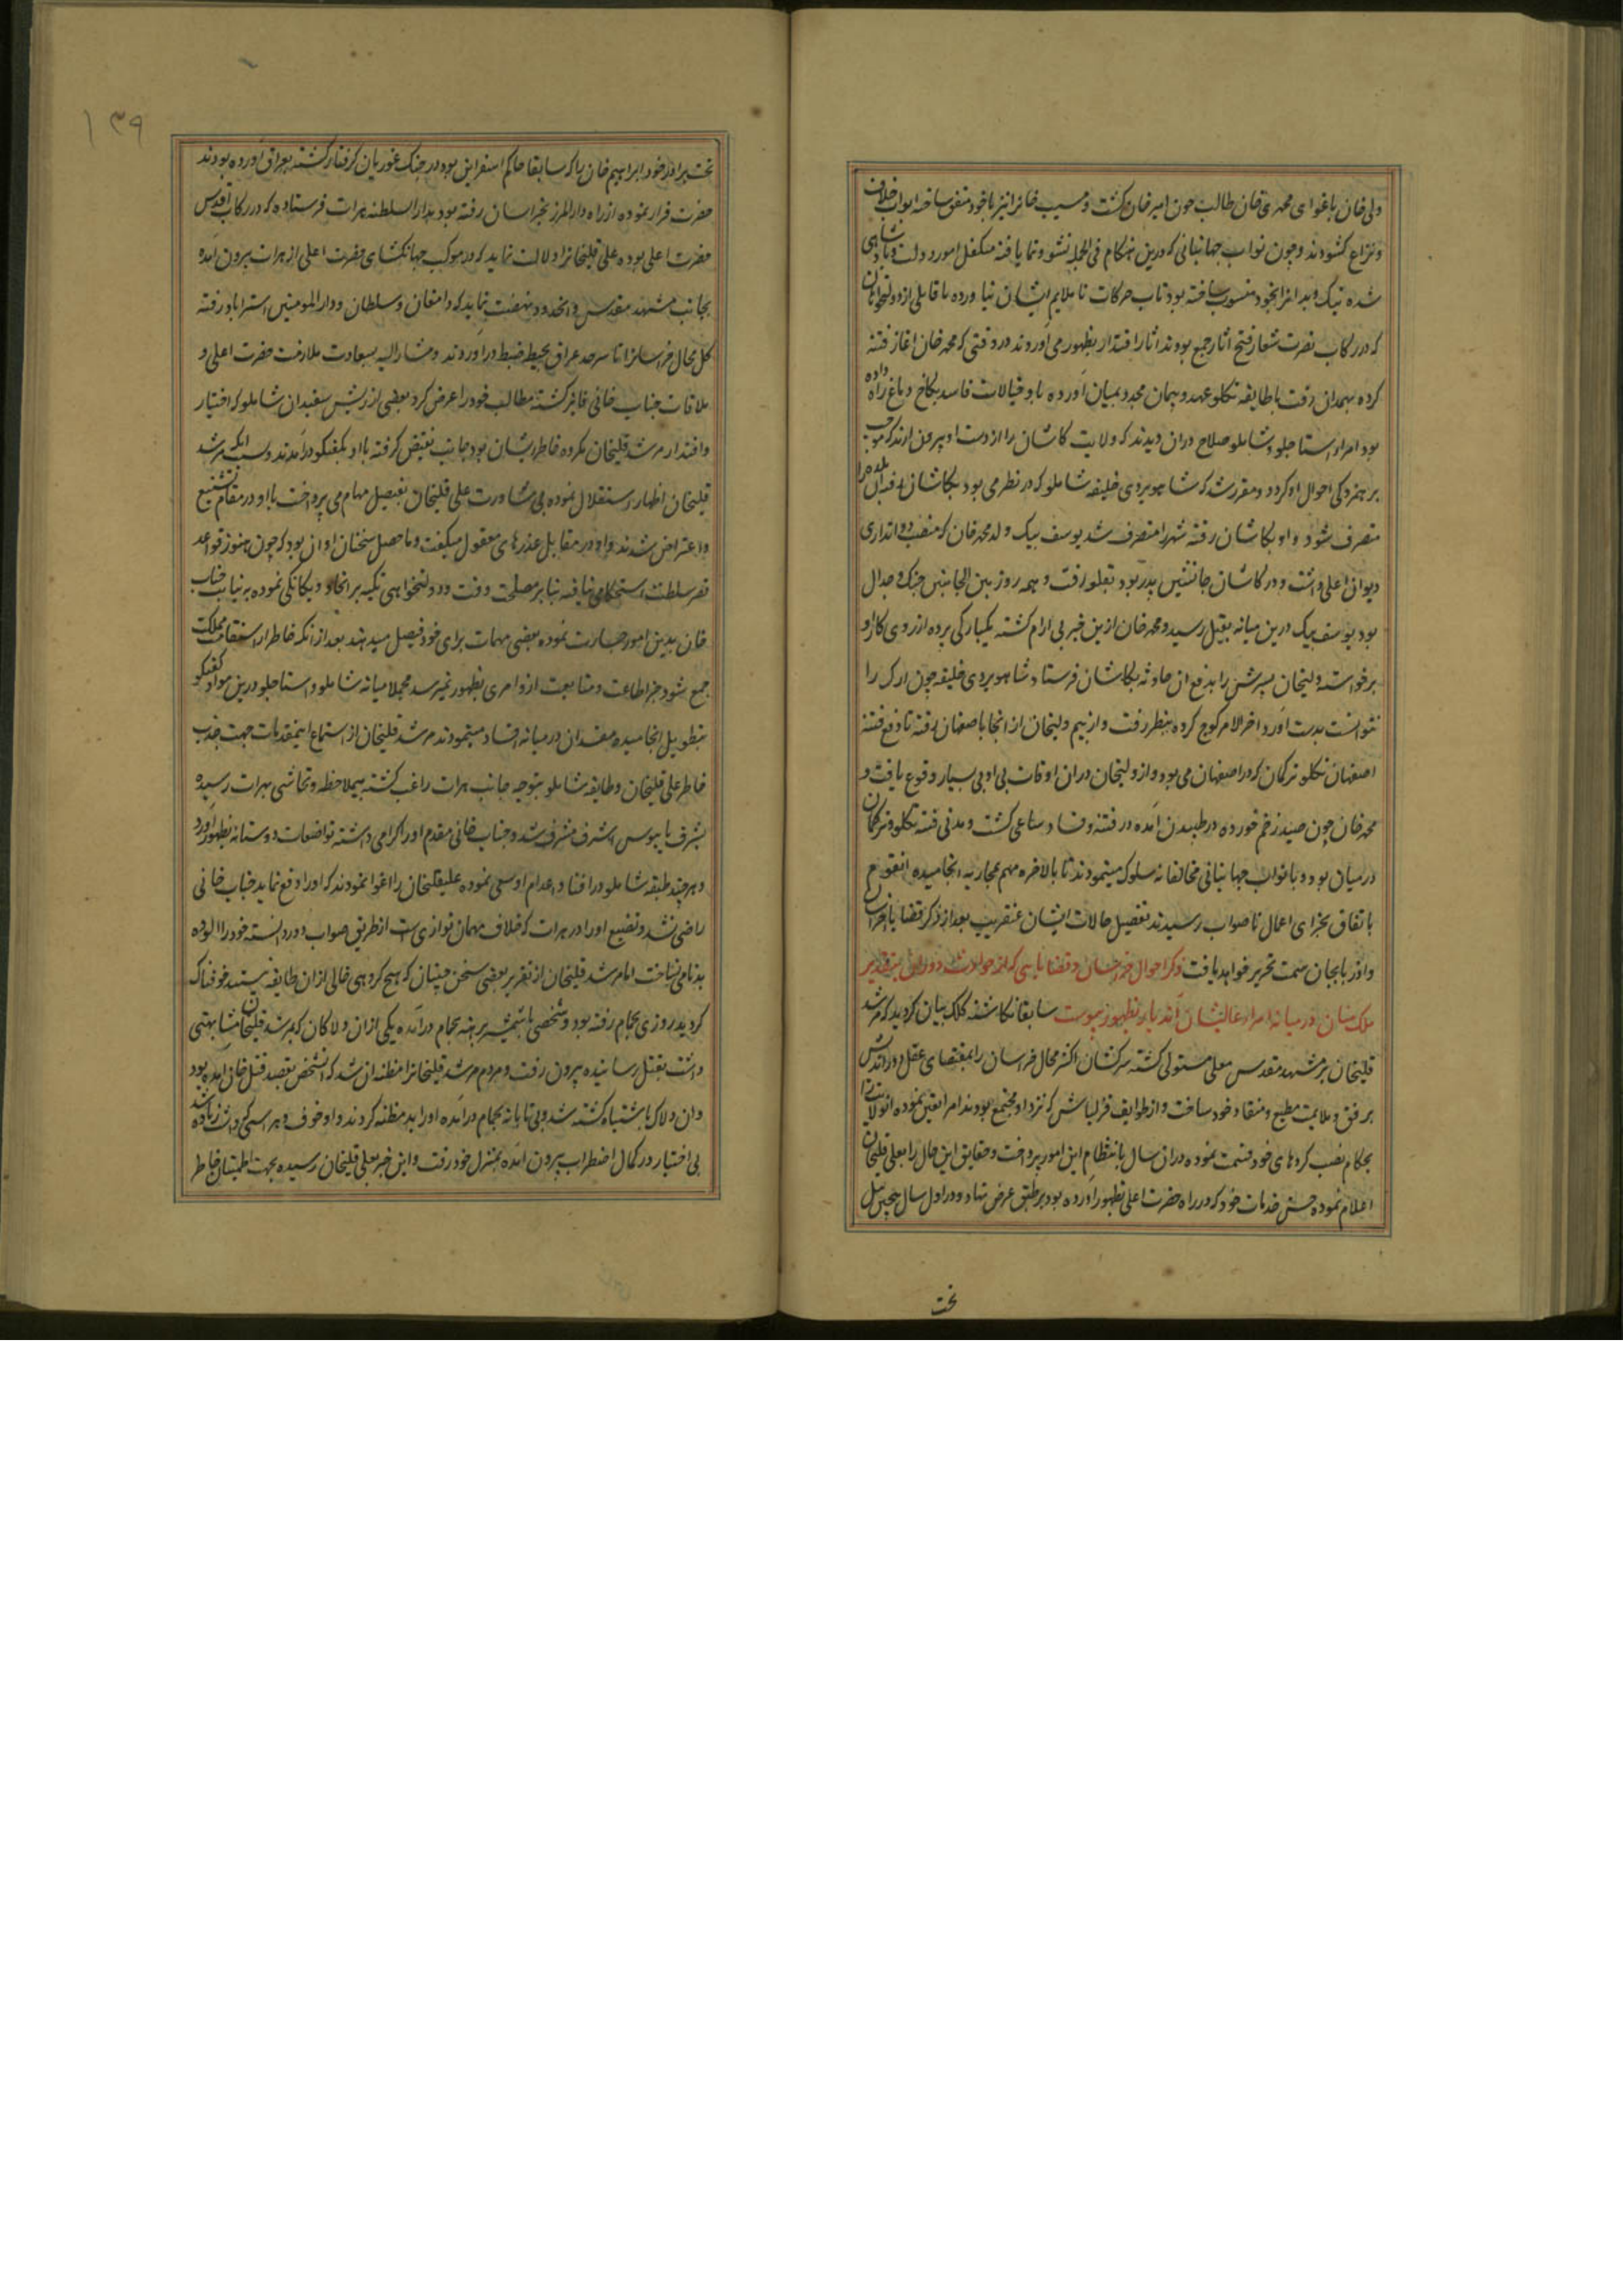 ولی خان باغوای محمدی خان طالب خون امیر خان گشت و مسیب خانرا نیز باخود متفق ساخته ابواب خلاف
و نزاع کشودند و چون نواب جهانبانی که درین هنکام فی الجمله نشو و نما یافته متکفل امور دولت و پادشاهی
شده نیک و بد انرا بخود منسوب ساخته بود تاب حرکات ناملایم ایشان نیاورده با قابلی از دولتخواهان
که در رکاب نصرت شعار فتح اثار جمع بودند اثار اقتدار بظهور می اوردند در وقتی که محمد خان اغاز فتنه
کرده بهمدان رفت با طایفه تکلو عهد و پیمان مجدد بمیان آورده باد خیالات فاسد بکاخ دماغ راه داده
بود امراء استاجلو و شاملو صلاح دران دیدند که ولایت کاشان را از دست او بیرون ارند که موجب
برهمزدکی احوال او کردد و مقرر شد که شاهویردی خلیفه شاملو که در نطنز می بود بکاشان رفته ان بلده را
متصرف شود و او بکاشان رفته شهر را متصرف شد یوسف بیک ولد محمد خان که منصب دواتداری
دیوان اعلی داشت و در کاشان جانشین پدر بود بقلعه رفت و همه روز بین الجانبین جنک و جدال
بود یوسف بیک درین میانه بقتل رسید و محمد خان ازین خبر بی ارام کشته یکبارکی پرده از روی کار او
برخواست و لیخان پسرش را بدفع ان حادثه بکاشان فرستاد شاهویردی خلیفه چون ارک را
نتوانست بدست آورد اخر الامر کوچ کرده بنطنز رفت و از بیم ولیخان از انجا باصفهان رفته تا دفع فتنه
اصفهان تکلو ترکمان که در اصفهان می بود و از ولیخان دران اوقات بی ادبی بسیار وقوع یافت و
محمد خان چون صید زخم خورده در طپیدن آمده در فتنه و فساد ساعی کشت و مدتی فتنه تکلو و ترکمان
در میان بود و با نواب جهانبانی مخالفانه سلوک مینمودند تا بالاخره مهم بمحاربه انجامیده انقوم
باتفاق بجزای اعمال ناصواب رسیدند تفصیل حالات ایشان عنقریب بعد از ذکر قضایا خراسان
و اذربایجان سمت تحریر خواهد یافت ذکر احوال خراسان و قضایایی که از حوادث دوران بتقدیر
ملک منان در میانه امراء عالیشان آندیار بظهور پیوست سابقا نکاشته کلک بیان کردید که مرشد
قلیخان بر مشهد مقدس معلی مستولی کشته سرکشان اکثر محال خراسان را بمقتضای عقل دور اندیش
برفق و ملایمت مطیع و منقاد خود ساخت و از طوایف قزلباش که نزد او مجتمع بودند امرا تعین نموده انولایت را
بحکام نصب کردهای خود قسمت نموده دران سال بانتظام این امور پرداخت و حقایق این حال را بعلی قلیخان
اعلام نموده حسن خدمات خود که در راه حضرت اعلی بظهور آورده بود بر طبق عرض نهاد و در اول سال پیچین ئیل
نخست
۱۳۹
نخست برادر خود ابراهیم خان را که سابقا حاکم اسفراین بود در جنک غوریان کرفتار کشته بعراق آورده بودند
حضرت فرار نموده از راه دار المرز بخراسان رفته بود بدار السلطنه هرات فرستاده که در رکاب اقدس
حضرت اعلی بوده علی قلیخانرا دلالت نماید که در موکب جهانکشای حضرت اعلی از هرات بیرون آمده
بجانب مشهد مقدس و انحدود نهضت نماید که دامغان و سلطان و دار المومنین استراباد رفته
کل محال خراسانرا تا سرحد عراق بحیطه ضبط در آوردند و مشار الیه بسعادت ملازمت حضرت اعلی و
ملاقات جناب خانی فایز کشته مطالب خود را عرض کرد بعضی از ریش سفیدان شاملو که اختیار
و اقتدار مرشد قلیخان مکروه خاطر ایشان بود جانب نقیض کرفته با او بکفتکو درآمدند و سبب انکه مرشد
قلیخان اظهار استقلال نموده بی مشاورت علی قلیخان بفیصل مهام می پرداخت با او در مقام تشنیع
و اعتراض شدند و او در مقابل عذرهای معقول میکفت و ماحصل سخنان او ان بود که چون هنوز قواعد
قصر سلطنت استحکامی نیافته بنابر مصلحت وقت و دولتخواهی تکیه بر اتحاد و یکانکی نموده به نیابت جناب
خان بدین امور جسارت نموده بعضی مهمات برای خود فیصل میدهد بعد از انکه خاطر از استقامت مملکت
جمع شود جز اطاعت و متابعت از و امری بظهور نمیرسد مجملا میانه شاملو و استاجلو درین مواد کفتکو
بتطویل انجامیده مفسدان در میانه افساد مینمودند مرشد قلیخان از استماع اینمقدمات جهت جذب
خاطر علی قلیخان و طایفه شاملو بتوجه جانب هرات راغب کشته بیملاحظه و تحاشی بهرات رسیده
بشرف پایبوس اشرف مشرف شد و جناب خانی مقدم او را کرامی داشته تواضعات دوستانه بظهور آورد
و هر چند طبقه شاملو در افناء و اعدام او سعی نموده علیقلیخان را اغوا نمودند که او را دفع نماید جناب خانی
راضی نشد و تضییع او را در هرات که خلاف مهمان نوازی است از طریق صواب دور دانسته خود را الوده
بدنامی نساخت اما مرشد قلیخان از تقریر بعضی سخن چینان که هیچ کروهی خالی از ان طایفه نیستند خوفناک
کردید روزی بحمام رفته بود و شخصی با شمشیر برهنه بحمام درآمده یکی از ان دلاکان که بمرشد قلیخان مشابهتی
داشت بقتل رسانیده بیرون رفت و مردم مرشد قلیخانرا مظنه ان شد که انشخص بقصد قتل خان امده بود
و ان دلاک باشتباه کشته شد و بی تابانه بحمام درآمده او را بد مظنه کردند و او خوف و هراسی که داشت زیاده شد
بی اختیار در کمال اضطراب بیرون آمده بمنزل خود رفت و این خبر بعلی قلیخان رسیده بجهت اطمینان خاطر